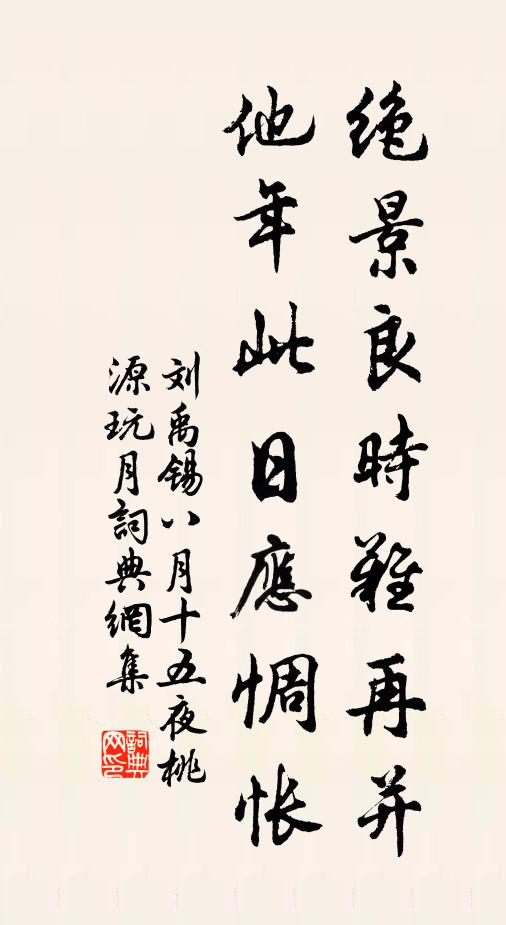 绝景良時難再并
他年此日應惆怅
刘禹锡八月十五夜桃
源玩月詞典網集
詞典
网印